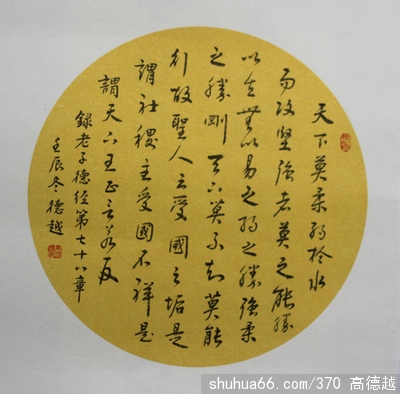 天下莫柔弱於水
而攻堅強者莫之能勝
以其無以易之弱之勝強柔
之勝剛天下莫不知莫能
行故聖人云受國之垢是
謂社稷主受國不祥是
謂天下王正言若反
録老子德經第七十八章
壬辰冬德越
shuhua66.com/370 高德越